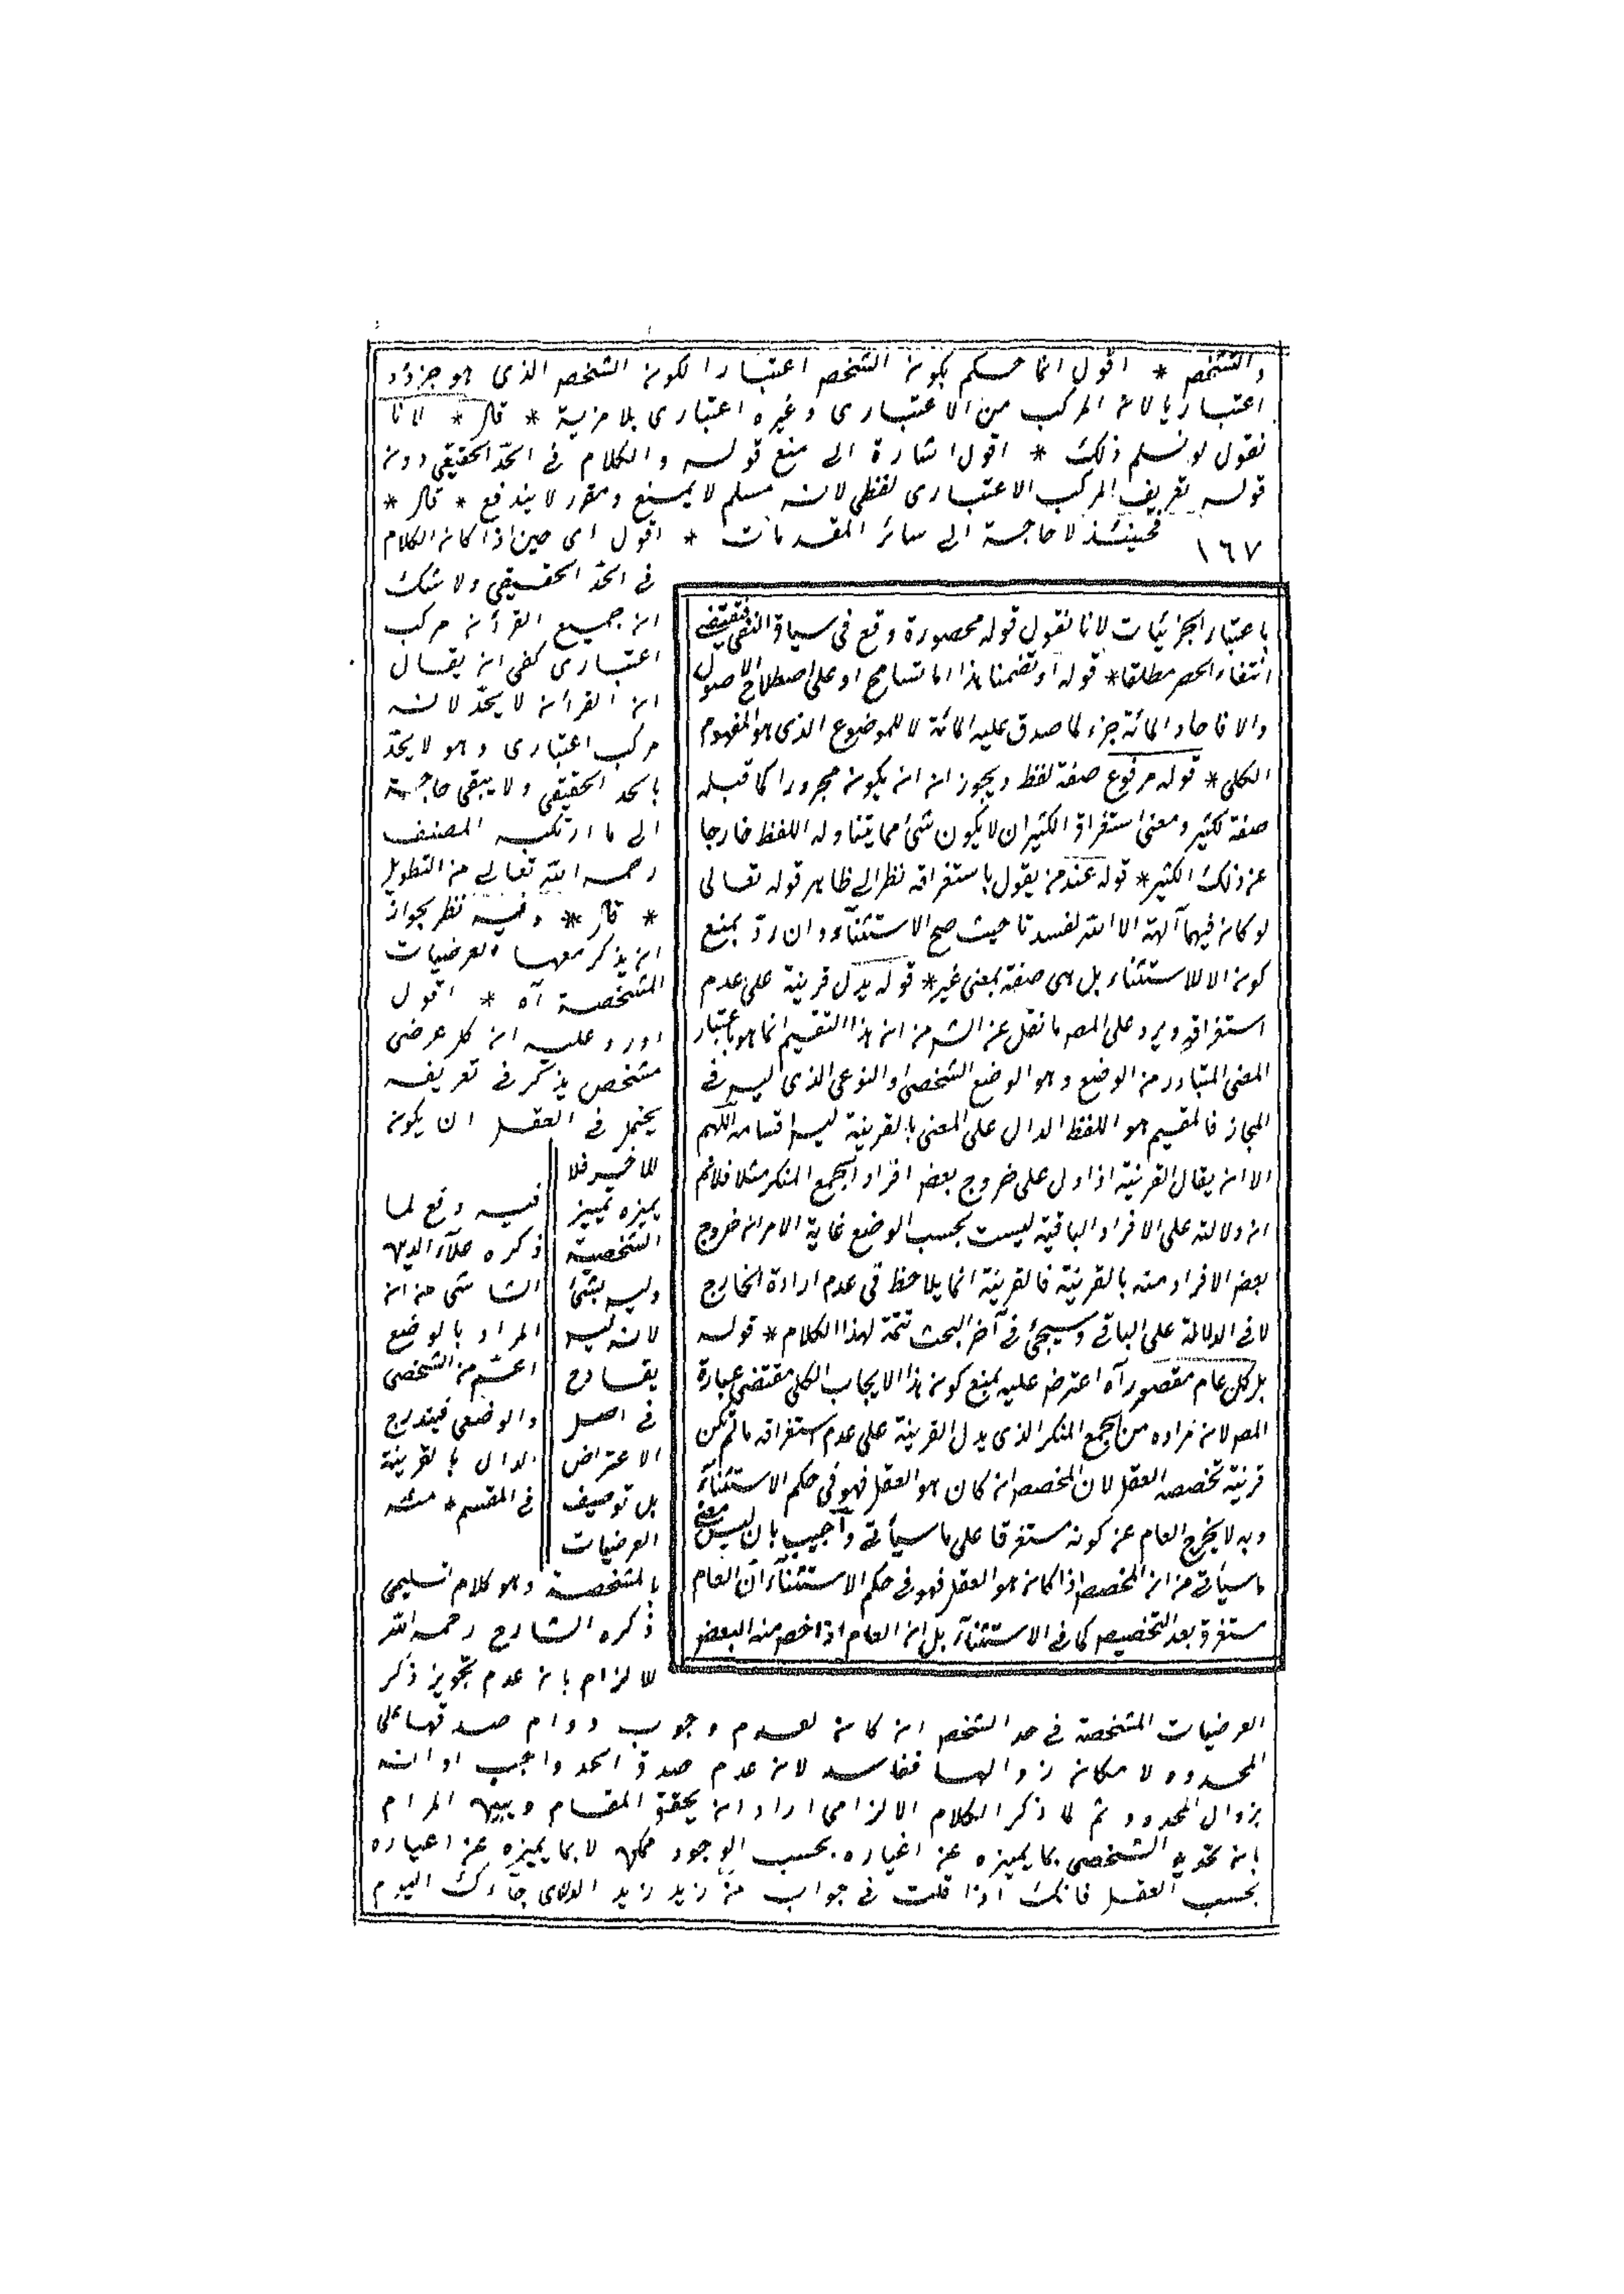 والتشخص * اقول انما حكم بكون الشخص اعتباريا لكون الشخص الذى هو جزؤه
اعتباريا لان المركب من الاعتبارى وغيره اعتبارى بلا مزية * قال * لانا
نقول لو نسلم ذلك * اقول اشارة الى منع قوله والكلام فى الحدّ الحقيقى دون
قوله تعريف المركب الاعتبارى لفظى لانه مسلم لا يمنع ومقرر لا يندفع * قال *
فحينئذ لا حاجة الى سائر المقدمات * اقول اى حين اذا كان الكلام
١٦٧
فى الحدّ الحقيقى ولا شك
ان جميع القرأن مركب
اعتبارى كفى ان يقال
ان القرأن لا يحدّ لانه
مركب اعتبارى وهو لا يحدّ
بالحد الحقيقى ولا يبقى حاجة
الى ما ارتكبه المصنف
رحمه الله تعالى من التطويل
* قال * وفيه نظر لجواز
ان يذكر معها العرضيات
المشخصة آه * اقول
اورد عليه ان كل عرضى
مشخص يذكر فى تعريفه
يحتمل فى العقل ان يكون
للاخير فلا
يميزه تمييز
الشخصية
وليس بشئ
لانه ليس
يقادح
فى اصل
الاعتراض
بل توصيف
العرضيات
بالمشخصة وهو كلام تسليمى
ذكره الشارح رحمه الله
للالزام بان عدم تجويز ذكر
العرضيات المشخصة فى حد الشخص ان كان لعدم وجوب دوام صدقها على
المحدود لامكان زوالها ففاسد لان عدم صدق الحد واجب اوانه
بزوال المحدود ثم لما ذكر الكلام الالزامى اراد ان يحقق المقام ويبين المرام
بان تحديد الشخصى بما يميزه عن اغياره بحسب الوجود ممكن لا بما يميزه عن اغياره
بحسب العقل فانك اذا قلت فى جواب من زيد زيد الذى جاءك اليوم
باعتبار الجزئيات لانا نقول قوله محصورة وقع فى سياق النفى فيقتضى
انتفاء الحصر مطلقا * قوله او تضمنا هذا اما تسامح او على اصطلاح الاصول
والا فآحاد المائة جزء لما صدق عليه المائة لا للموضوع الذى هو المفهوم
الكلى * قوله مرفوع صفة لفظ ويجوز ان ان يكون مجرورا كما قبله
صفة لكثير ومعنى استغراق الكثير ان لا يكون شئ مما يتناوله اللفظ خارجا
عن ذلك الكثير * قوله عند من يقول باستغراقه نظرا الى ظاهر قوله تعالى
لو كان فيهما آلهة الا الله لفسدتا حيث صح الاستثناء وان ردّ بمنع
كون الا للاستثناء بل هى صفة بمعنى غير * قوله يدل قرينة على عدم
استغراقه ويرد على المص ما نقل عن الش من ان هذا التقسيم انما هو باعتبار
المعنى المتبادر من الوضع وهو الوضع الشخصى او النوعى الذى ليس فى
المجاز فالمقسم هو اللفظ الدال على المعنى بالقرينة ليس اقسامه اللهم
الا ان يقال القرينة اذا دل على خروج بعض افراد الجمع المنكر مثلا فلا نم
ان دلالته على الافراد الباقية ليست بحسب الوضع غاية الامر ان خروج
بعض الافراد منه بالقرينة فالقرينة انما يلاحظ فى عدم ارادة الخارج
لا فى الدلالة على الباقى وسيجئ فى آخر البحث تتمة لهذا الكلام * قوله
بل كل عام مقصور آه اعترض عليه بمنع كون هذا الايجاب الكلى مقتضى عبارة
المص لان مراده من الجمع المنكر الذى يدل القرينة على عدم استغراقه ما لم تكن
قرينة تخصصه العقل لان المخصص ان كان هو العقل فهو فى حكم الاستثناء
وبه لا يخرج العام عن كونه مستغرقا على ما سيأتى وأجيب بان ليس معنى
ما سيأتى من ان المخصص اذا كان هو العقل فهو فى حكم الاستثناء ان العام
مستغرق بعد التخصيص كما فى الاستثناء بل ان العام اذا خص منه البعض
فيه دفع لما
ذكره علآء الدين
الشاشى من ان
المراد بالوضع
اعمّ من الشخصى
والوضعى فيندرج
الدال بالقرينة
فى المقسم * منه